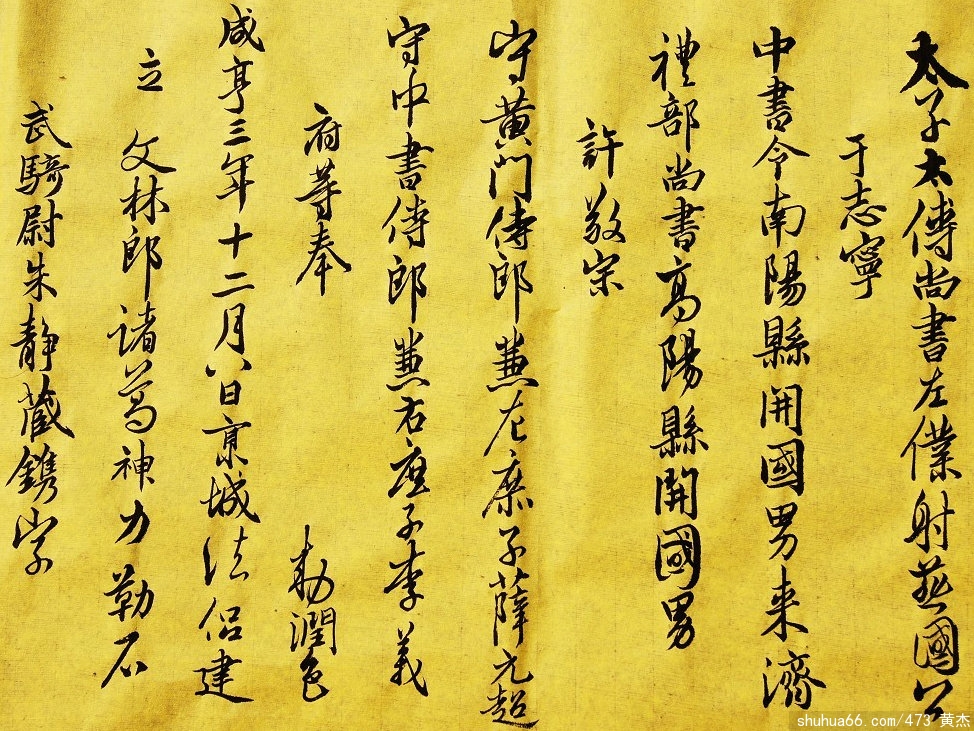 太子太傅尚書左僕射燕國公
于志寧
中書令南陽縣開國男来濟
禮部尚書高陽縣開國男
許敬宗
守黃門侍郎兼左庶子薛元超
守中書侍郎兼右庶子李義
府等奉 勑潤色
咸亨三年十二月八日京城法侶建
立 文林郎諸葛神力 勒石
武騎尉朱靜藏鐫字
shuhua66.com/473 黄杰